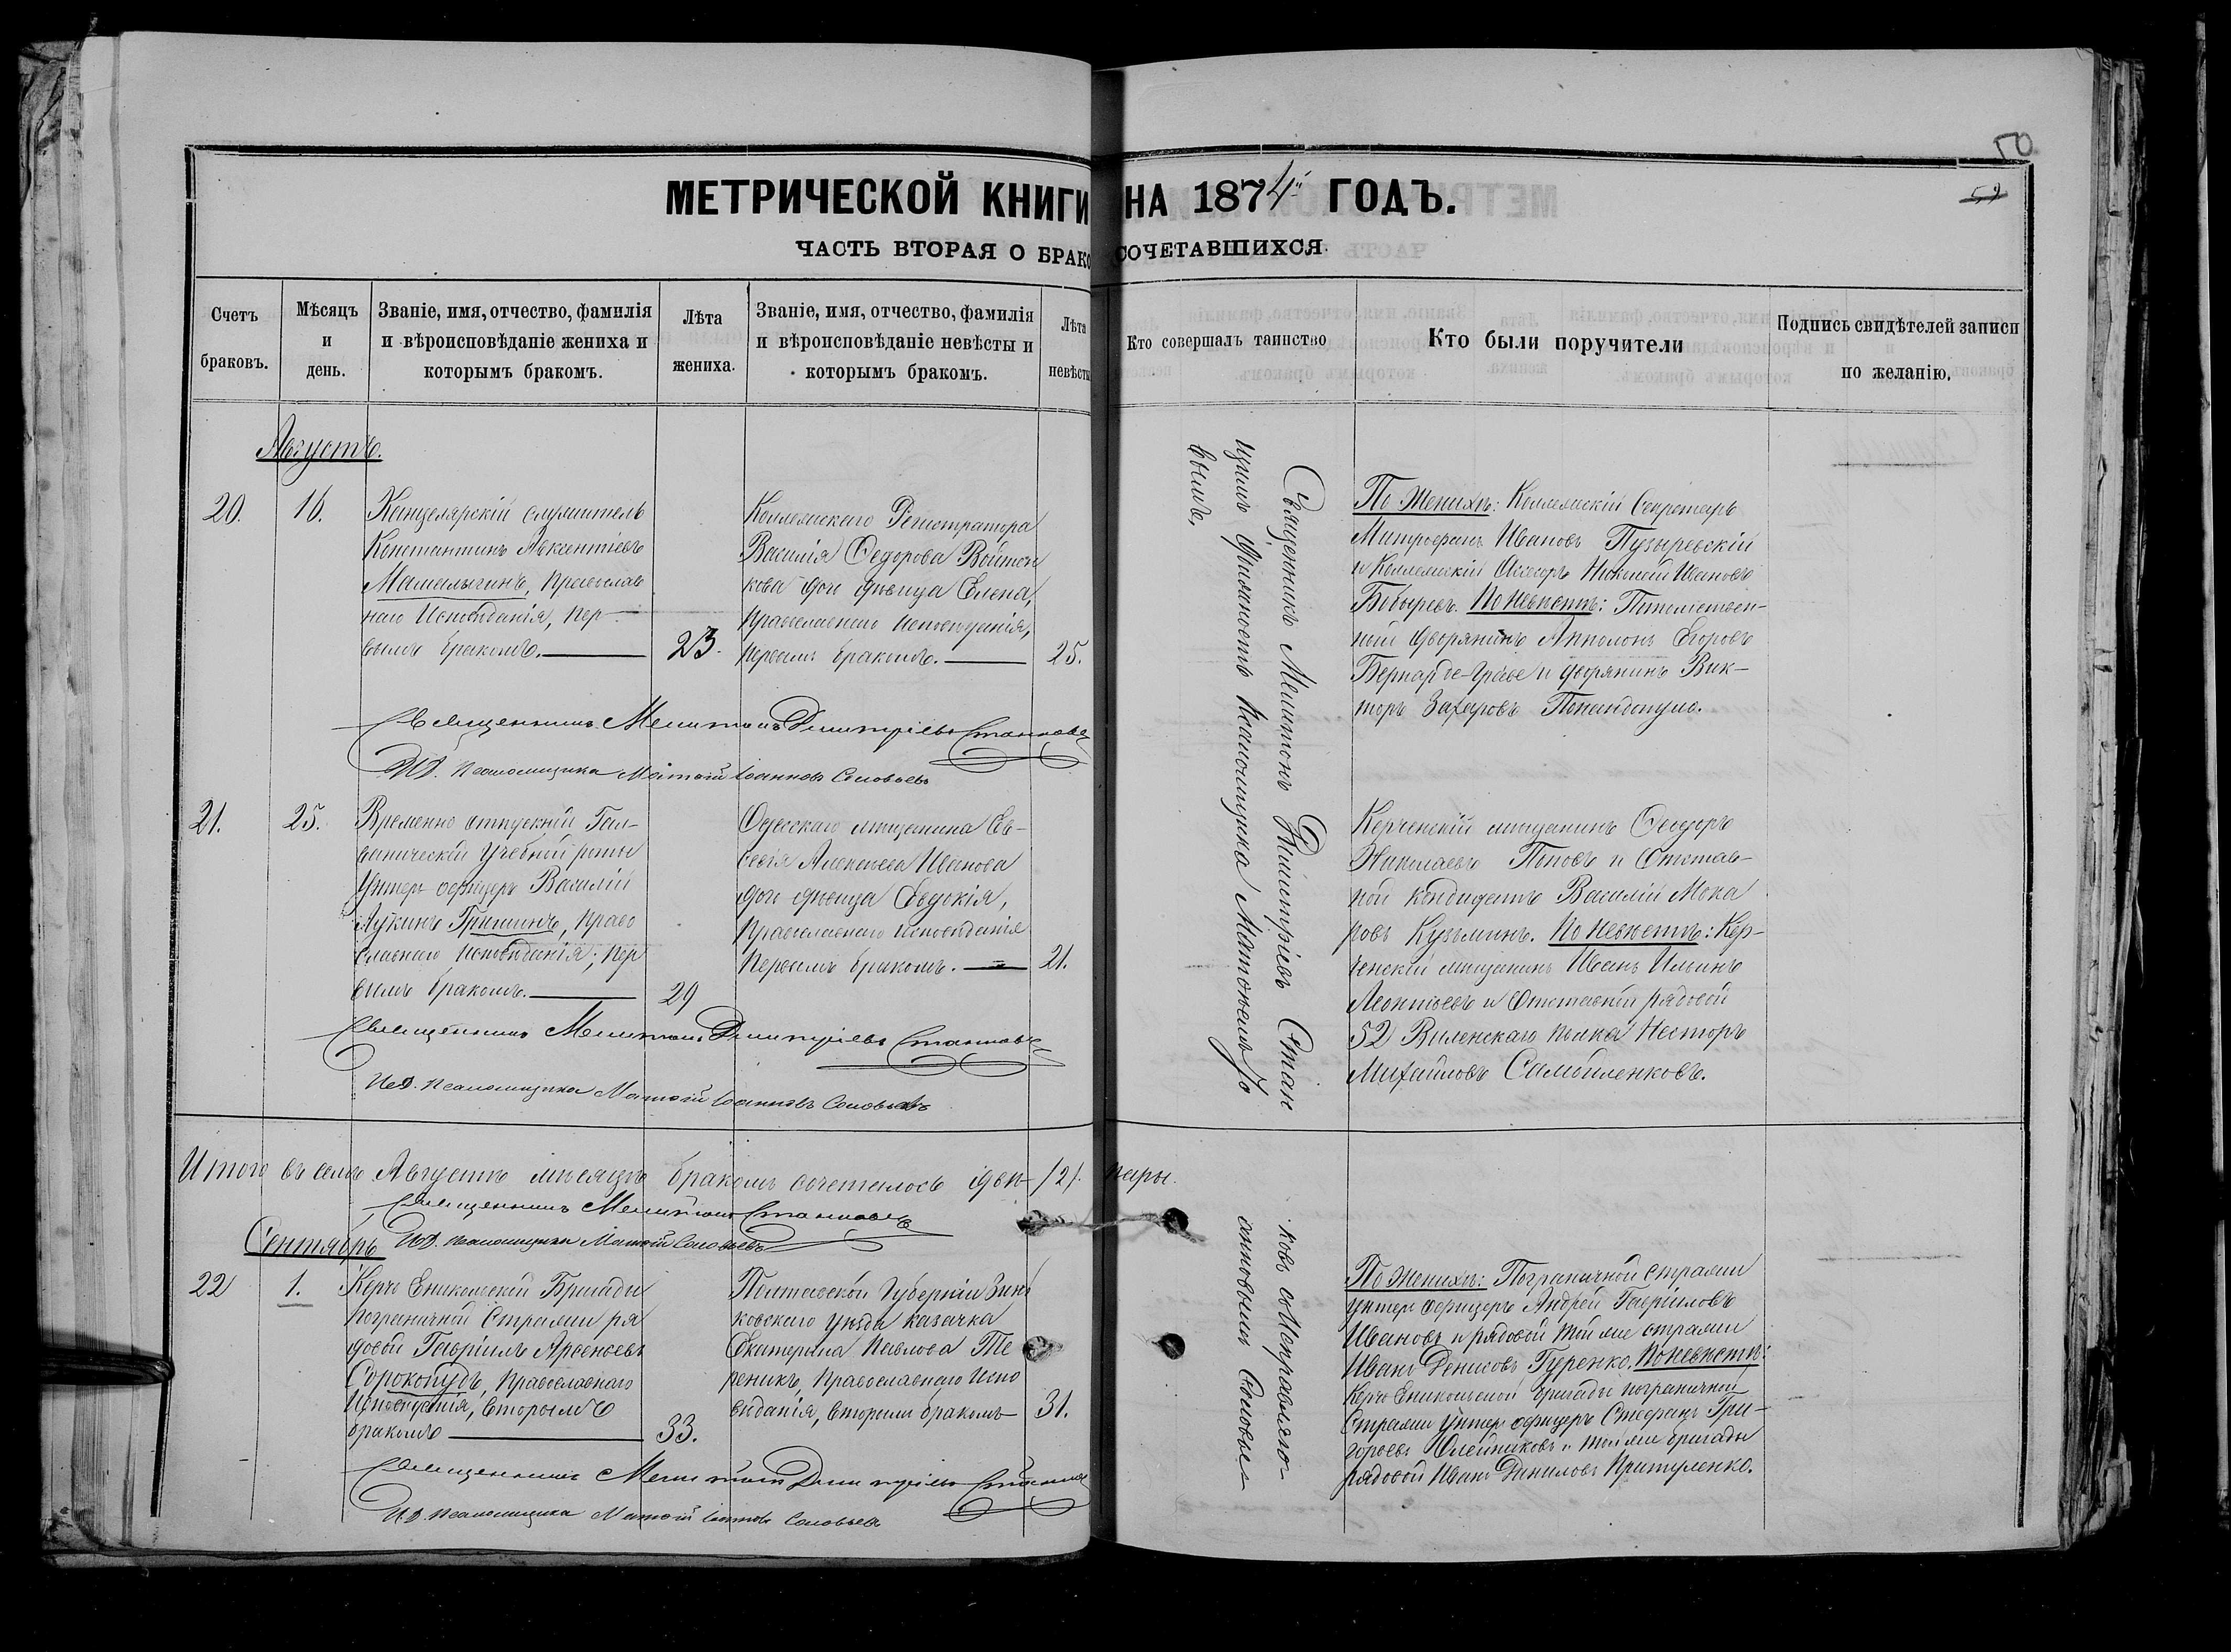 50
МЕТРИЧЕСКОЙ КНИГИ НА 1874й ГОДЪ.
ЧАСТЬ ВТОРАЯ О БРАКОСОЧЕТАВШИХСЯ.
Счетъ браковъ.
Мѣсяцъ и день.
Званіе, имя, отчество, фамилія и вѣроисповѣданіе жениха и которымъ бракомъ.
Лѣта жениха.
Званіе, имя, отчество, фамилія и вѣроисповѣданіе невѣсты и которымъ бракомъ.
Лѣта невѣсты
Кто совершалъ таинство
Кто были поручители
Подпись свидѣтелей записи по желанію.
Августъ.
20.
16.
Канцелярскій служитель
Константинъ Авксентіевъ
Машлыгинъ, Православ
наго Исповѣданія, пер-
вымъ бракомъ.
23.
Коллежскаго Регистратора
Василія Ѳедорова Войтен
кова дочь дѣвица Елена,
Православнаго Исповѣданія,
первымъ бракомъ.
25.
Священникъ Мелитонъ Димитріевъ Стан
щимъ должность Псаломщика Матѳеемъ Іо
вымъ.
По Женихѣ: Коллежскій Секретарь
Митрофанъ Ивановъ Пузыревскій
и Коллежскій Ассесоръ Николай Ивановъ
Бобыревъ. По Невѣстѣ: Потомствен-
ный дворянинъ Апполонъ Егоровъ
Бернарде-Граве и дворянинъ Вик-
торъ Захаровъ Попандопуло.
Священникъ Мелитонъ Димитріевъ Станковъ
И.Д. Псаломщика Матѳей Іоанновъ Соловьевъ
21.
25.
Временно отпускной Галь-
ванической Учебной роты
Унтеръ офицеръ Василій
Лукинъ Гришинъ, Право
славнаго Исповѣданія, пер
вымъ бракомъ.
29
Одесскаго мѣщанина Ев-
севія Алексѣева Иванова
дочь дѣвица Евдокія,
Православнаго Исповѣданія
первымъ бракомъ.
21.
Керченскій мѣщанинъ Ѳеодоръ
Николаевъ Поповъ и Отстав-
ной кондидатъ Василій Мока
ровъ Кузьминъ. По Невѣстѣ: Кер-
ченскій мѣщанинъ Иванъ Ильинъ
Леонтьевъ и Отставной рядовой
52 Виленскаго полка Несторъ
Михайловъ Самойленковъ.
Священникъ Мелитонъ Димитріевъ Станковъ
И.Д. Псаломщика Матѳей Іоанновъ Соловьевъ
Итого въ семъ Августѣ мѣсяцѣ бракомъ сочеталось двѣ /2/. пары.
Священникъ Мелитонъ Станковъ
И.Д. Псаломщика Матѳей Соловьевъ
Сентябрь
22
1.
Керчь Еникольской Бригады
пограничной Стражи ря
довой Гавріилъ Арсеньевъ
Сорокопудъ, Православнаго
Исповѣданія, вторымъ
бракомъ
33.
Полтавской Губерніи Зинь
ковскаго уѣзда казачка
Екатерина Павлова Те
реникъ, Православнаго Испо
вѣданія, вторымъ бракомъ
31.
ковъ со Исправляю-
анновымъ Соловье-
По Женихѣ: Пограничной Стражи
унтеръ офицеръ Андрей Гавриловъ
Ивановъ и рядовой той же стражи
Иванъ Денисовъ Гуренко. По Невѣстѣ:
Керчь Еникольской бригады пограничной
Стражи унтеръ офицеръ Стефанъ Гри-
горьевъ Олейниковъ и той же бригады
рядовой Иванъ Даниловъ Притуленко.
Священникъ Мелитонъ Димитріевъ Станков
И.Д. Псаломщика Матѳей Іоанновъ Соловьев